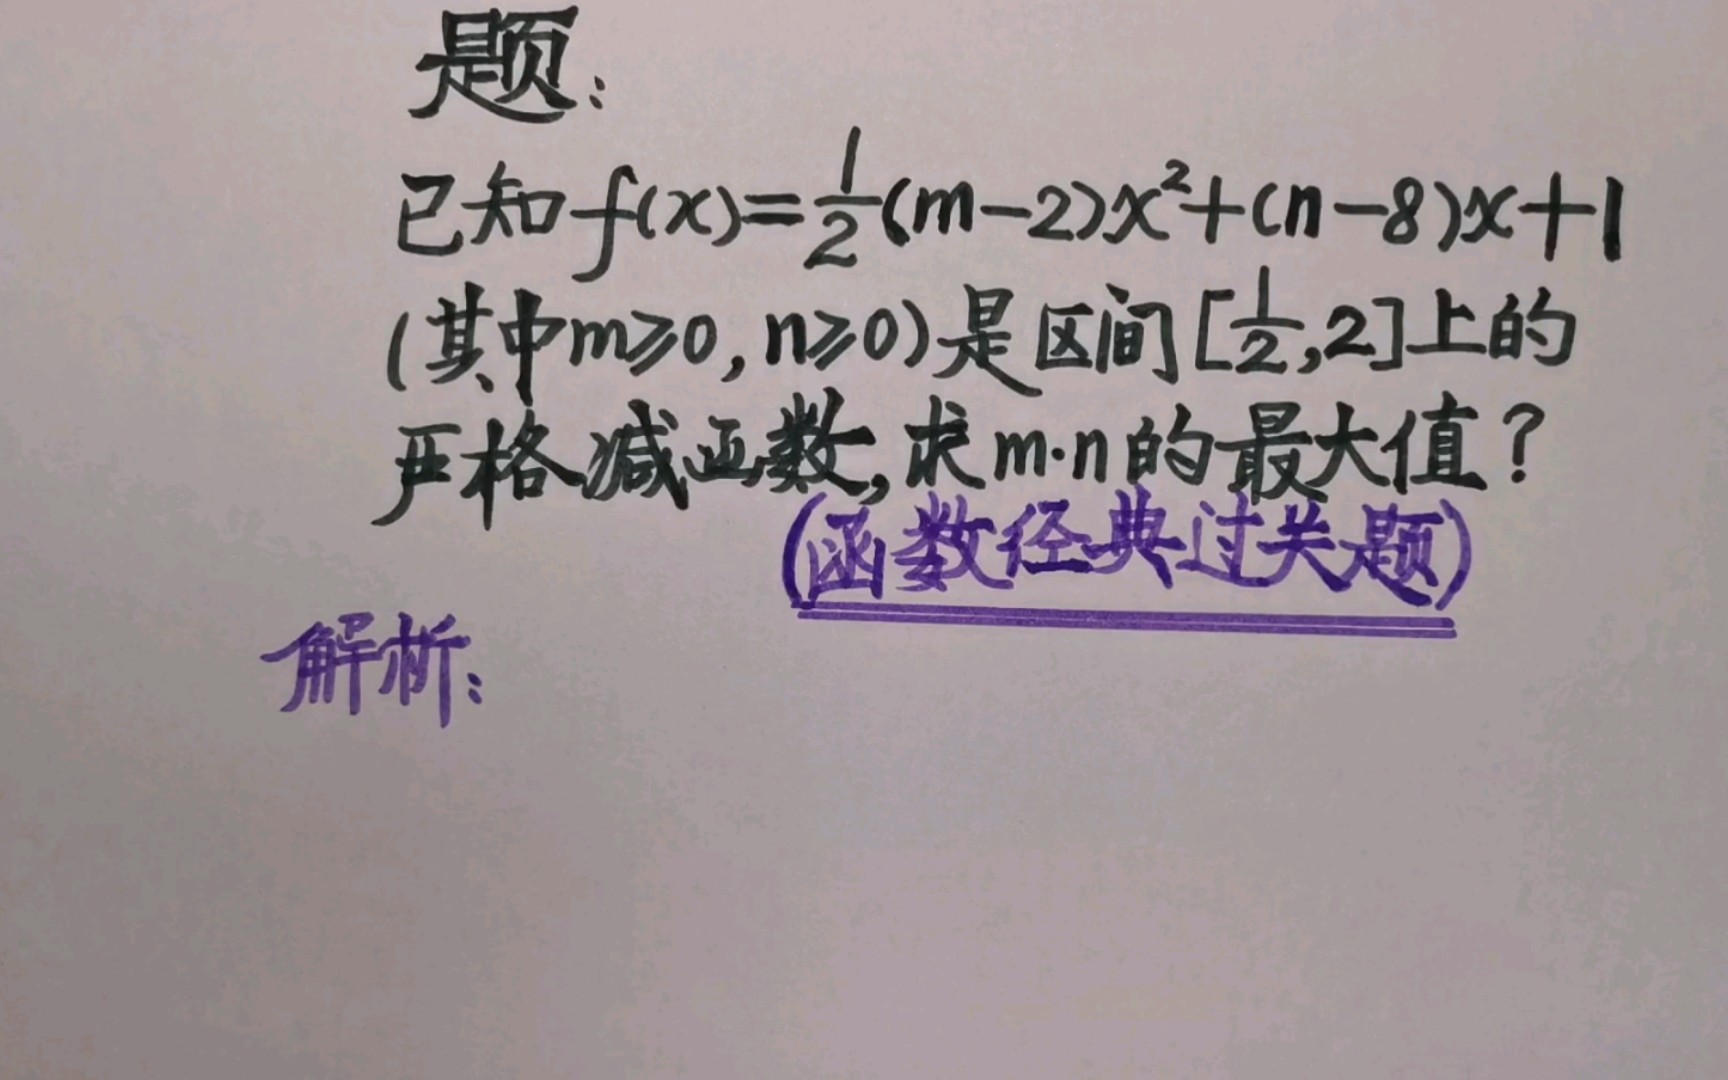 题:
已知f(x)=\frac{1}{2}(m-2)x²+(n-8)x+1
(其中m≥0,n≥0)是区间[\frac{1}{2},2]上的
严格减函数,求m·n的最大值?
(函数经典过关题)
解析: